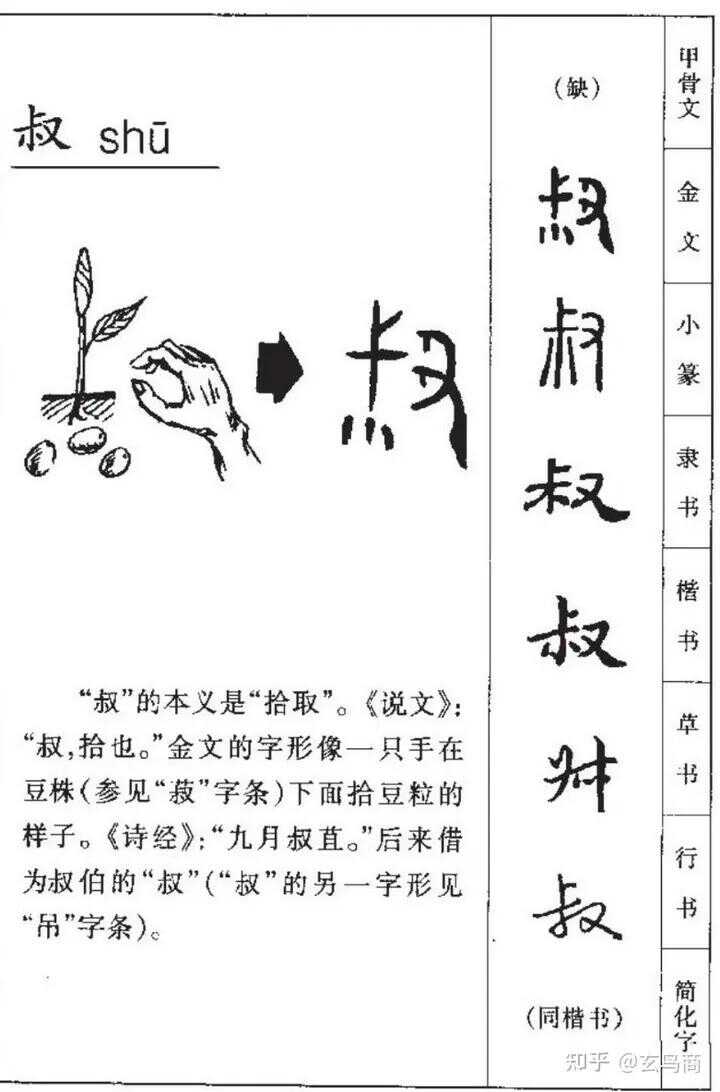 叔 shū
“叔”的本义是“拾取”。《说文》：
“叔，拾也。”金文的字形像一只手在
豆株（参见“菽”字条）下面拾豆粒的
样子。《诗经》：“九月叔苴。”后来借
为叔伯的“叔”（“叔”的另一字形见
“吊”字条）。
（缺） 甲骨文
叔 金文
叔 小篆
叔 隶书
叔 楷书
叔 草书
叔 行书
（同楷书） 简化字
知乎 @玄鸟商